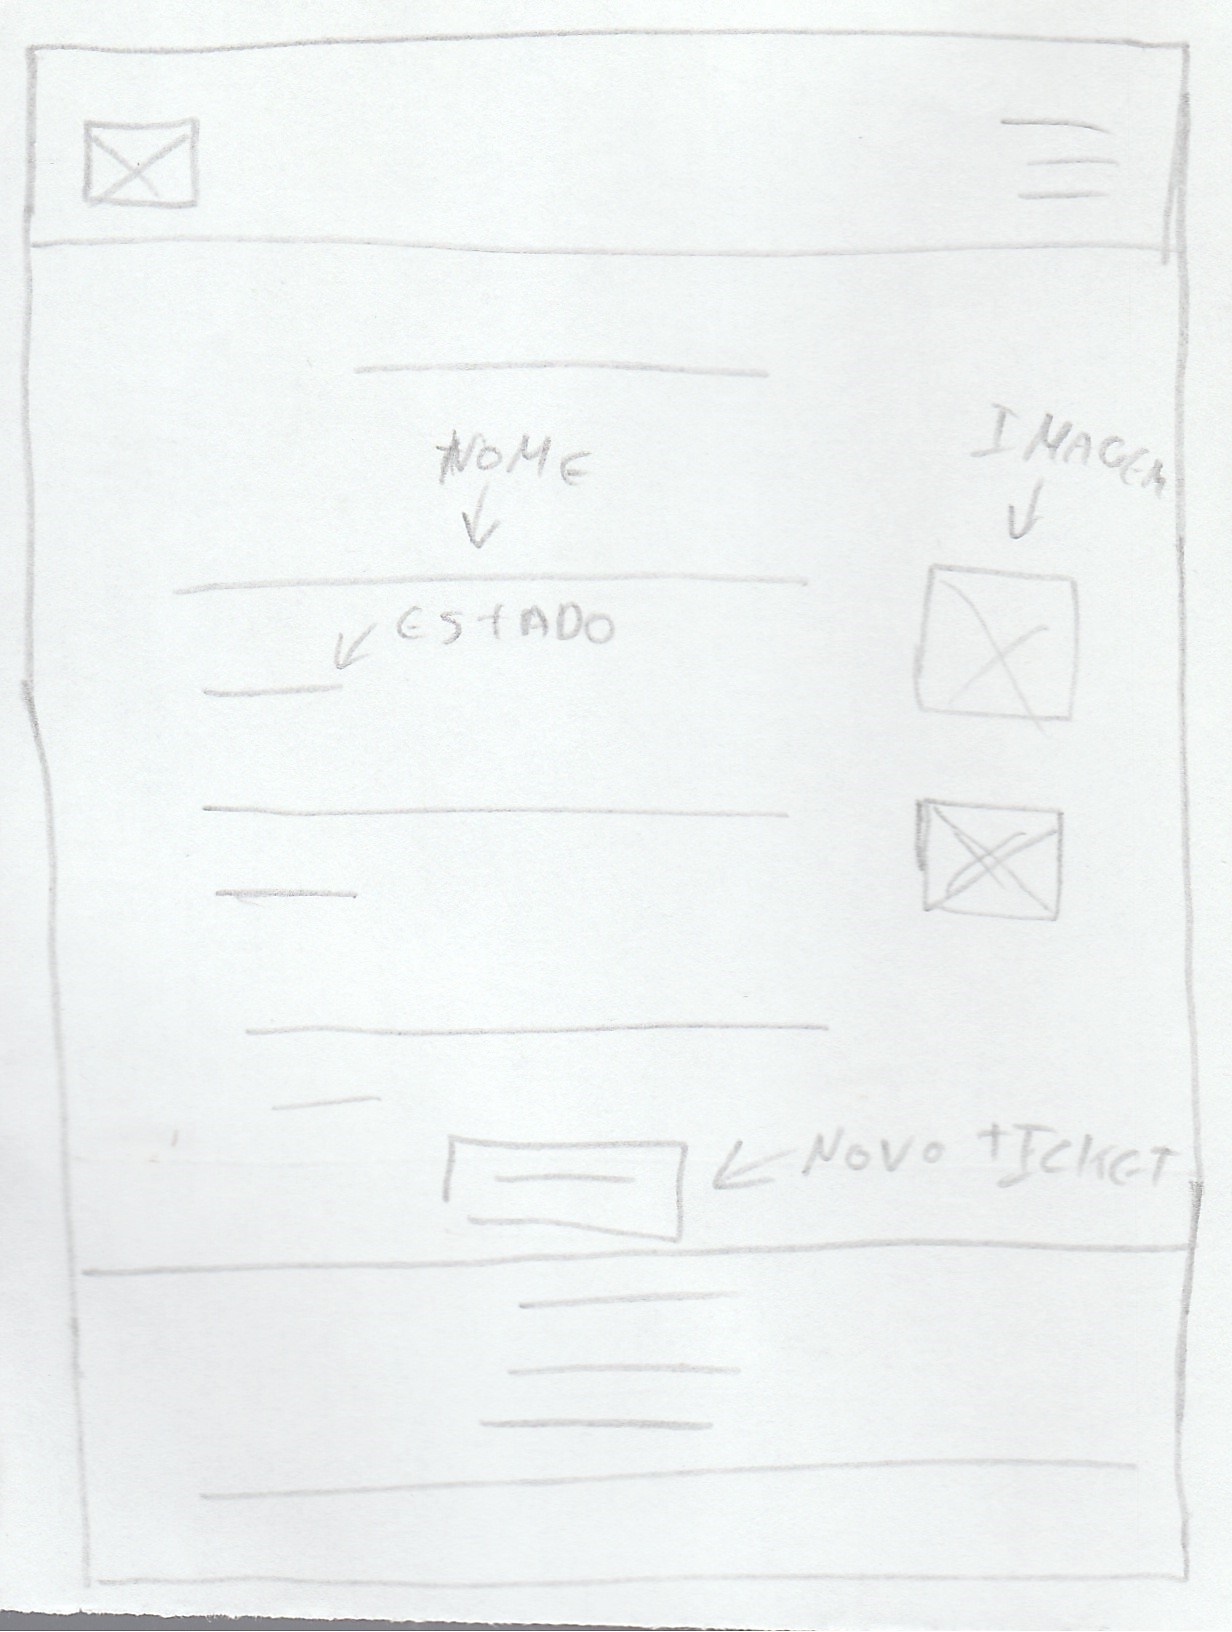 NOME
IMAGEM
ESTADO
NOVO TICKET